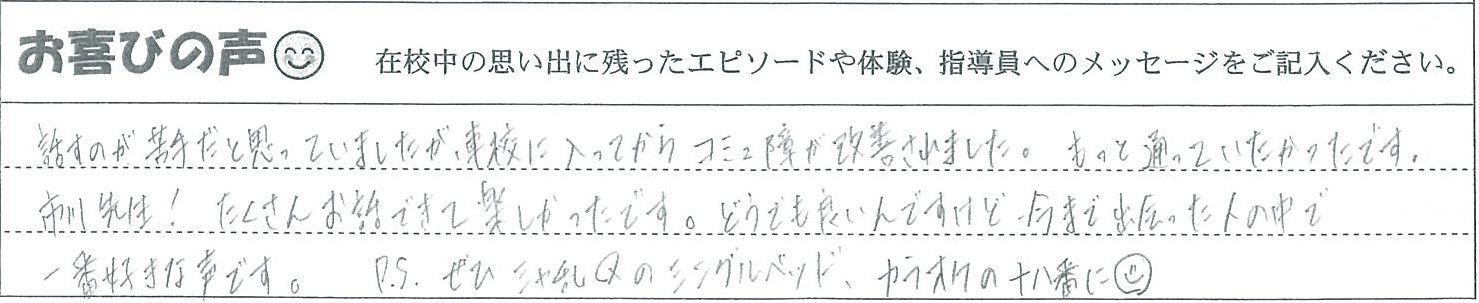 お喜びの声
在校中の思い出に残ったエピソードや体験、指導員へのメッセージをご記入ください。
話すのが苦手だと思っていましたが、車校に入ってからコミュ障が改善されました。もっと通っていたかったです。
市川先生！たくさんお話できて楽しかったです。どうでも良いんですけど今まで出会った人の中で
一番好きな声です。 P.S. ぜひシャ乱Qのシングルベッド、カラオケの十八番に